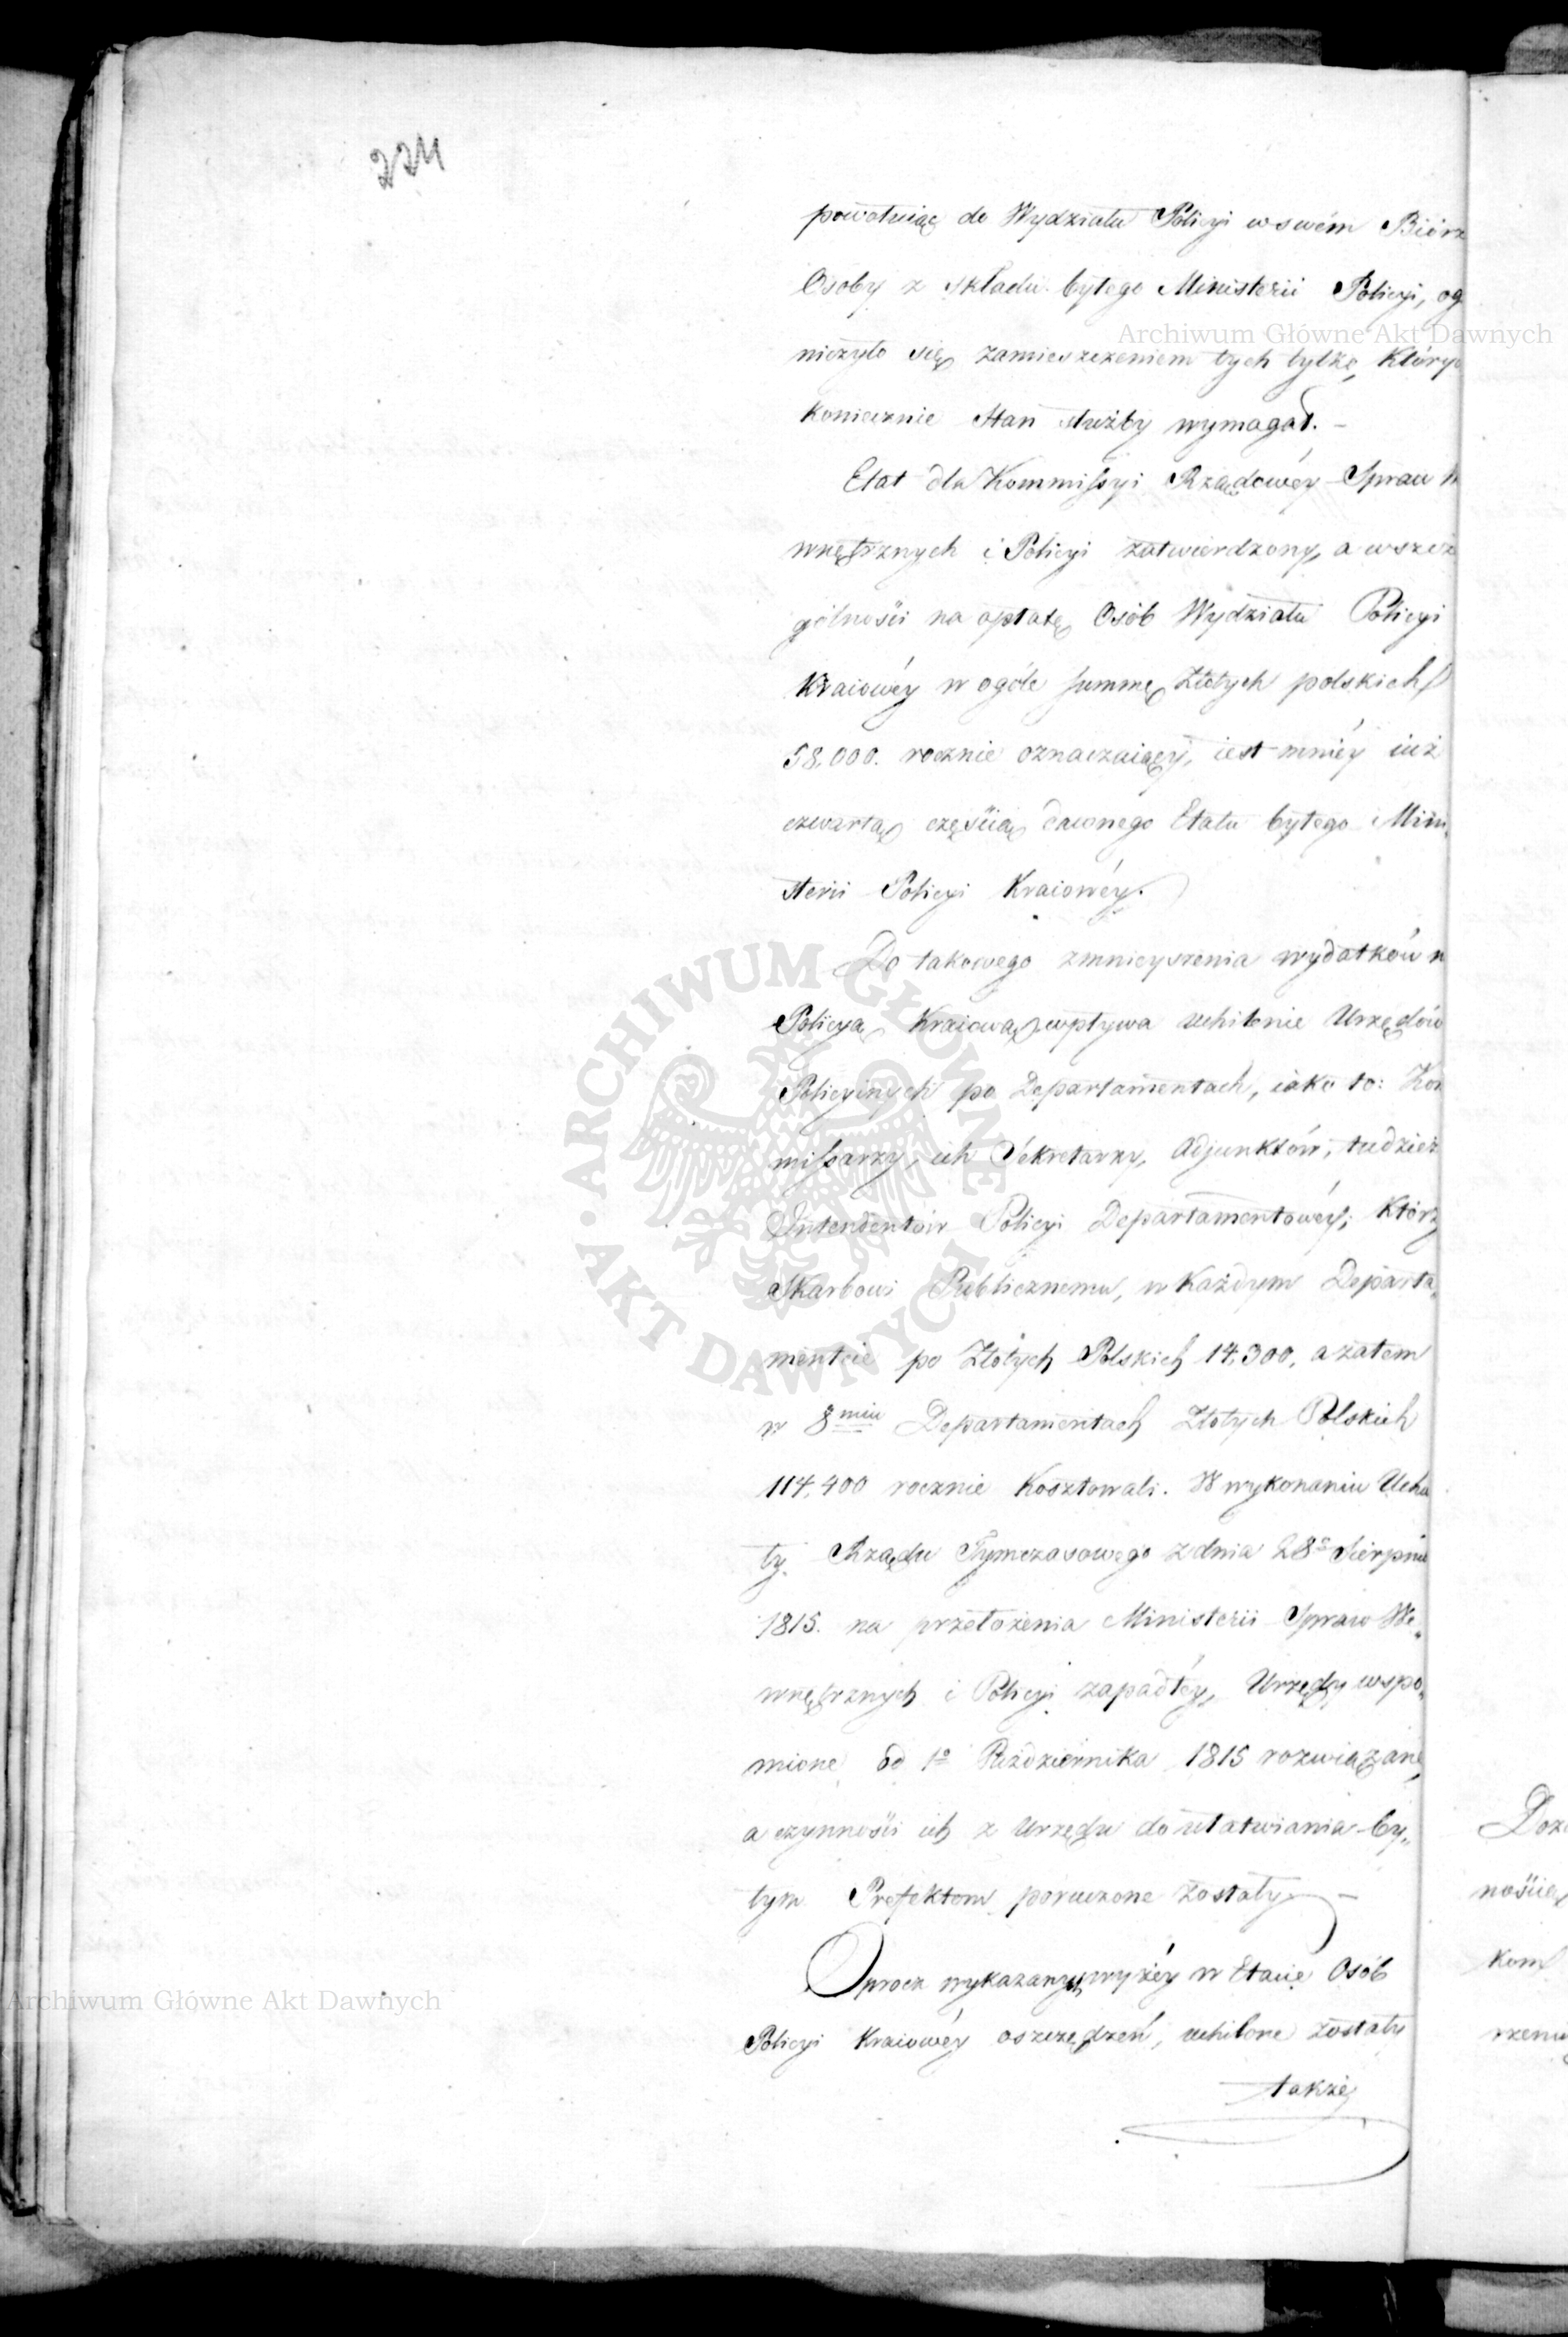 224
powołuiąc do Wydziału Policyi w swém Biórz
Osoby z składu byłego Ministerii Policyi, og
niczyło się zamieszczeniem tych tylko, któryc
koniecznie stan służby wymagał. –
Etat dla Kommissyi Rządowéy Spraw
wnętrznych i Policyi zatwierdzony, a w szcze
gólności na opłatę Osób Wydziału Policyi
Kraiowéy w ogóle summę Złotych polskich
58,000. rocznie oznaczaiący, iest mniéy iuż
czwartą częścią dawnego Etatu byłego Mini„
sterii Policyi Kraiowéy.
Do takowego zmnieyszenia wydatków n
Policyą Kraiową, wpływa uchilenie Urzędów
Policyinych po Departamentach, iako to: Kom
missarzy, ich Sekretarzy, Adjunktów, tudzież
Intendentów Policyi Departamentowéy; którz
Skarbowi Publicznemu, w każdym Departa„
mentcie po Złotych Polskich 14,300, a zatem
w 8miu Departamentach Złotych Polskich
114,400 rocznie kosztowali. W wykonaniu Ucha
ły Rządu Tymczasowego z dnia 28o Sierpnia
1815. na przełożenia Ministerii Spraw We„
wnętrznych i Policyi zapadłéy, Urzędy wspo„
mione od 1o Października 1815 rozwiązane,
a czynności ich z Urzędu do ułatwiania by„
łym Prefektom poruczone zostały. –
Oprocz wykazanych wyżéy w Etacie Osób
Policyi Kraiowéy oszczędzeń, uchilone zostały
także
Doz
nością
kom
rzeni
Archiwum Główne Akt Dawnych
ARCHIWUM GŁÓWNE · AKT DAWNYCH ·
Archiwum Główne Akt Dawnych